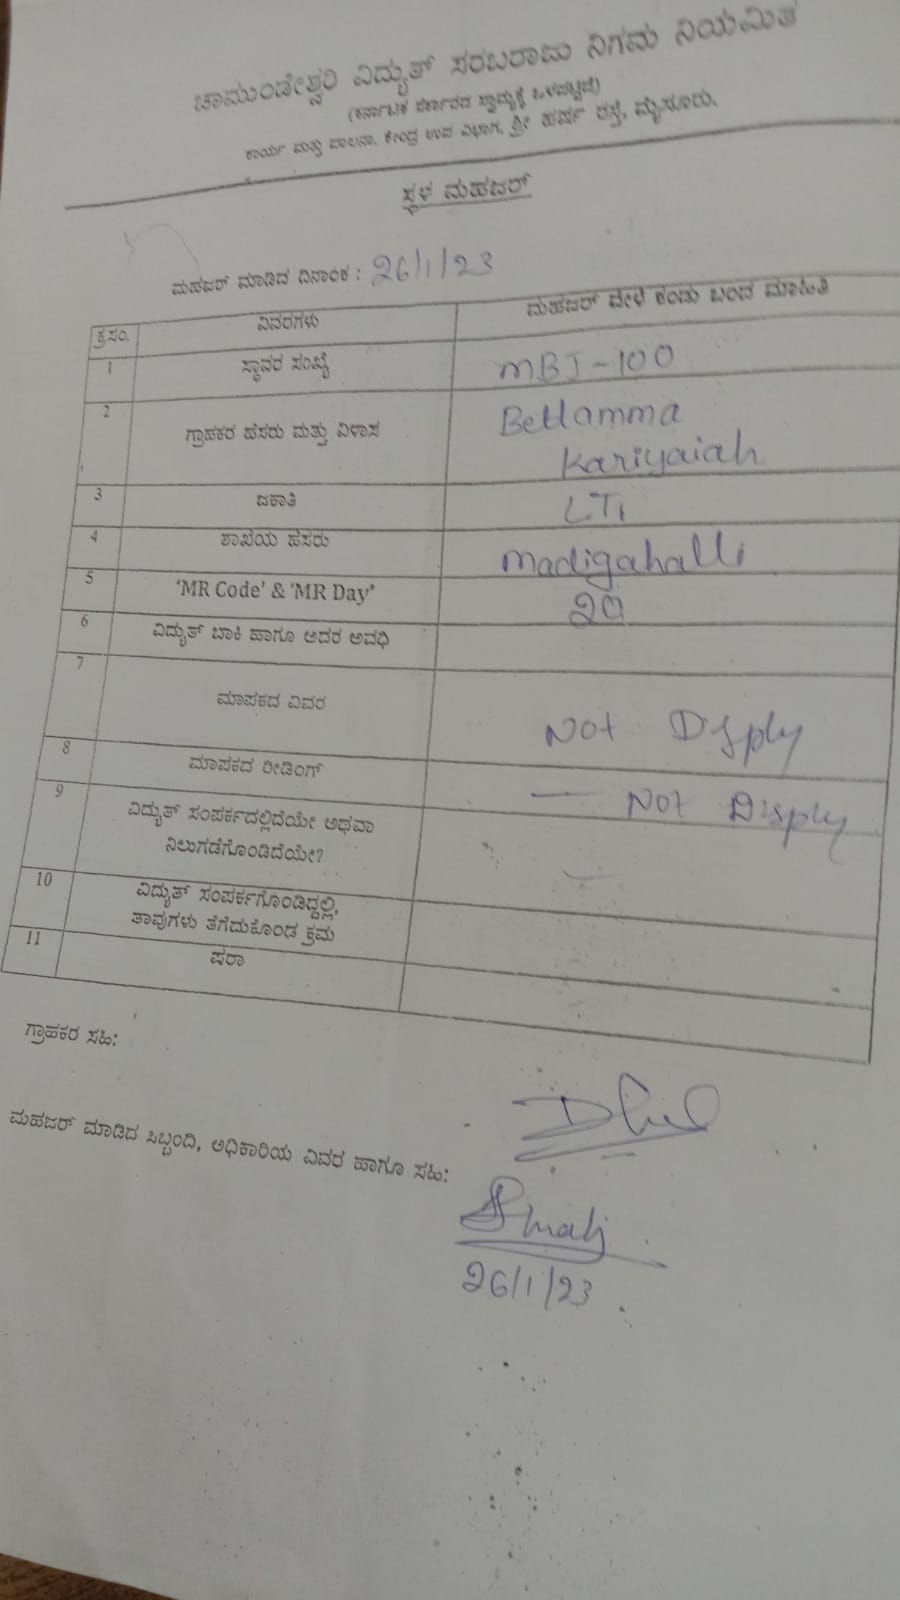 ಚಾಮುಂಡೇಶ್ವರಿ ವಿದ್ಯುತ್ ಸರಬರಾಜು ನಿಗಮ ನಿಯಮಿತ
(ಕರ್ನಾಟಕ ಸರ್ಕಾರದ ಸ್ವಾಮ್ಯಕ್ಕೆ ಒಳಪಟ್ಟಿದೆ)
ಕಾರ್ಯ ಮತ್ತು ಪಾಲನಾ, ಕೇಂದ್ರ ಉಪ ವಿಭಾಗ, ಶ್ರೀ ಹರ್ಷ ರಸ್ತೆ, ಮೈಸೂರು.
ಸ್ಥಳ ಮಹಜರ್
ಮಹಜರ್ ಮಾಡಿದ ದಿನಾಂಕ : 26/1/23
ಕ್ರ.ಸಂ. ವಿವರಗಳು ಮಹಜರ್ ವೇಳೆ ಕಂಡು ಬಂದ ಮಾಹಿತಿ
1 ಸ್ಥಾವರ ಸಂಖ್ಯೆ MBJ-100
2 ಗ್ರಾಹಕರ ಹೆಸರು ಮತ್ತು ವಿಳಾಸ Bettamma
Kariyaiah
3 ಜಕಾತಿ LT1
4 ಶಾಖೆಯ ಹೆಸರು Madigahalli
5 'MR Code' & 'MR Day'
6 ವಿದ್ಯುತ್ ಬಾಕಿ ಹಾಗೂ ಅದರ ಅವಧಿ
7 ಮಾಪಕದ ವಿವರ Not Disply
8 ಮಾಪಕದ ರೀಡಿಂಗ್ — Not Disply
9 ವಿದ್ಯುತ್ ಸಂಪರ್ಕದಲ್ಲಿದೆಯೇ ಅಥವಾ
ನಿಲುಗಡೆಗೊಂಡಿದೆಯೇ?
10 ವಿದ್ಯುತ್ ಸಂಪರ್ಕಗೊಂಡಿದ್ದಲ್ಲಿ,
ತಾವುಗಳು ತೆಗೆದುಕೊಂಡ ಕ್ರಮ
11 ಷರಾ
ಗ್ರಾಹಕರ ಸಹಿ:
ಮಹಜರ್ ಮಾಡಿದ ಸಿಬ್ಬಂದಿ, ಅಧಿಕಾರಿಯ ವಿವರ ಹಾಗೂ ಸಹಿ:
26/1/23